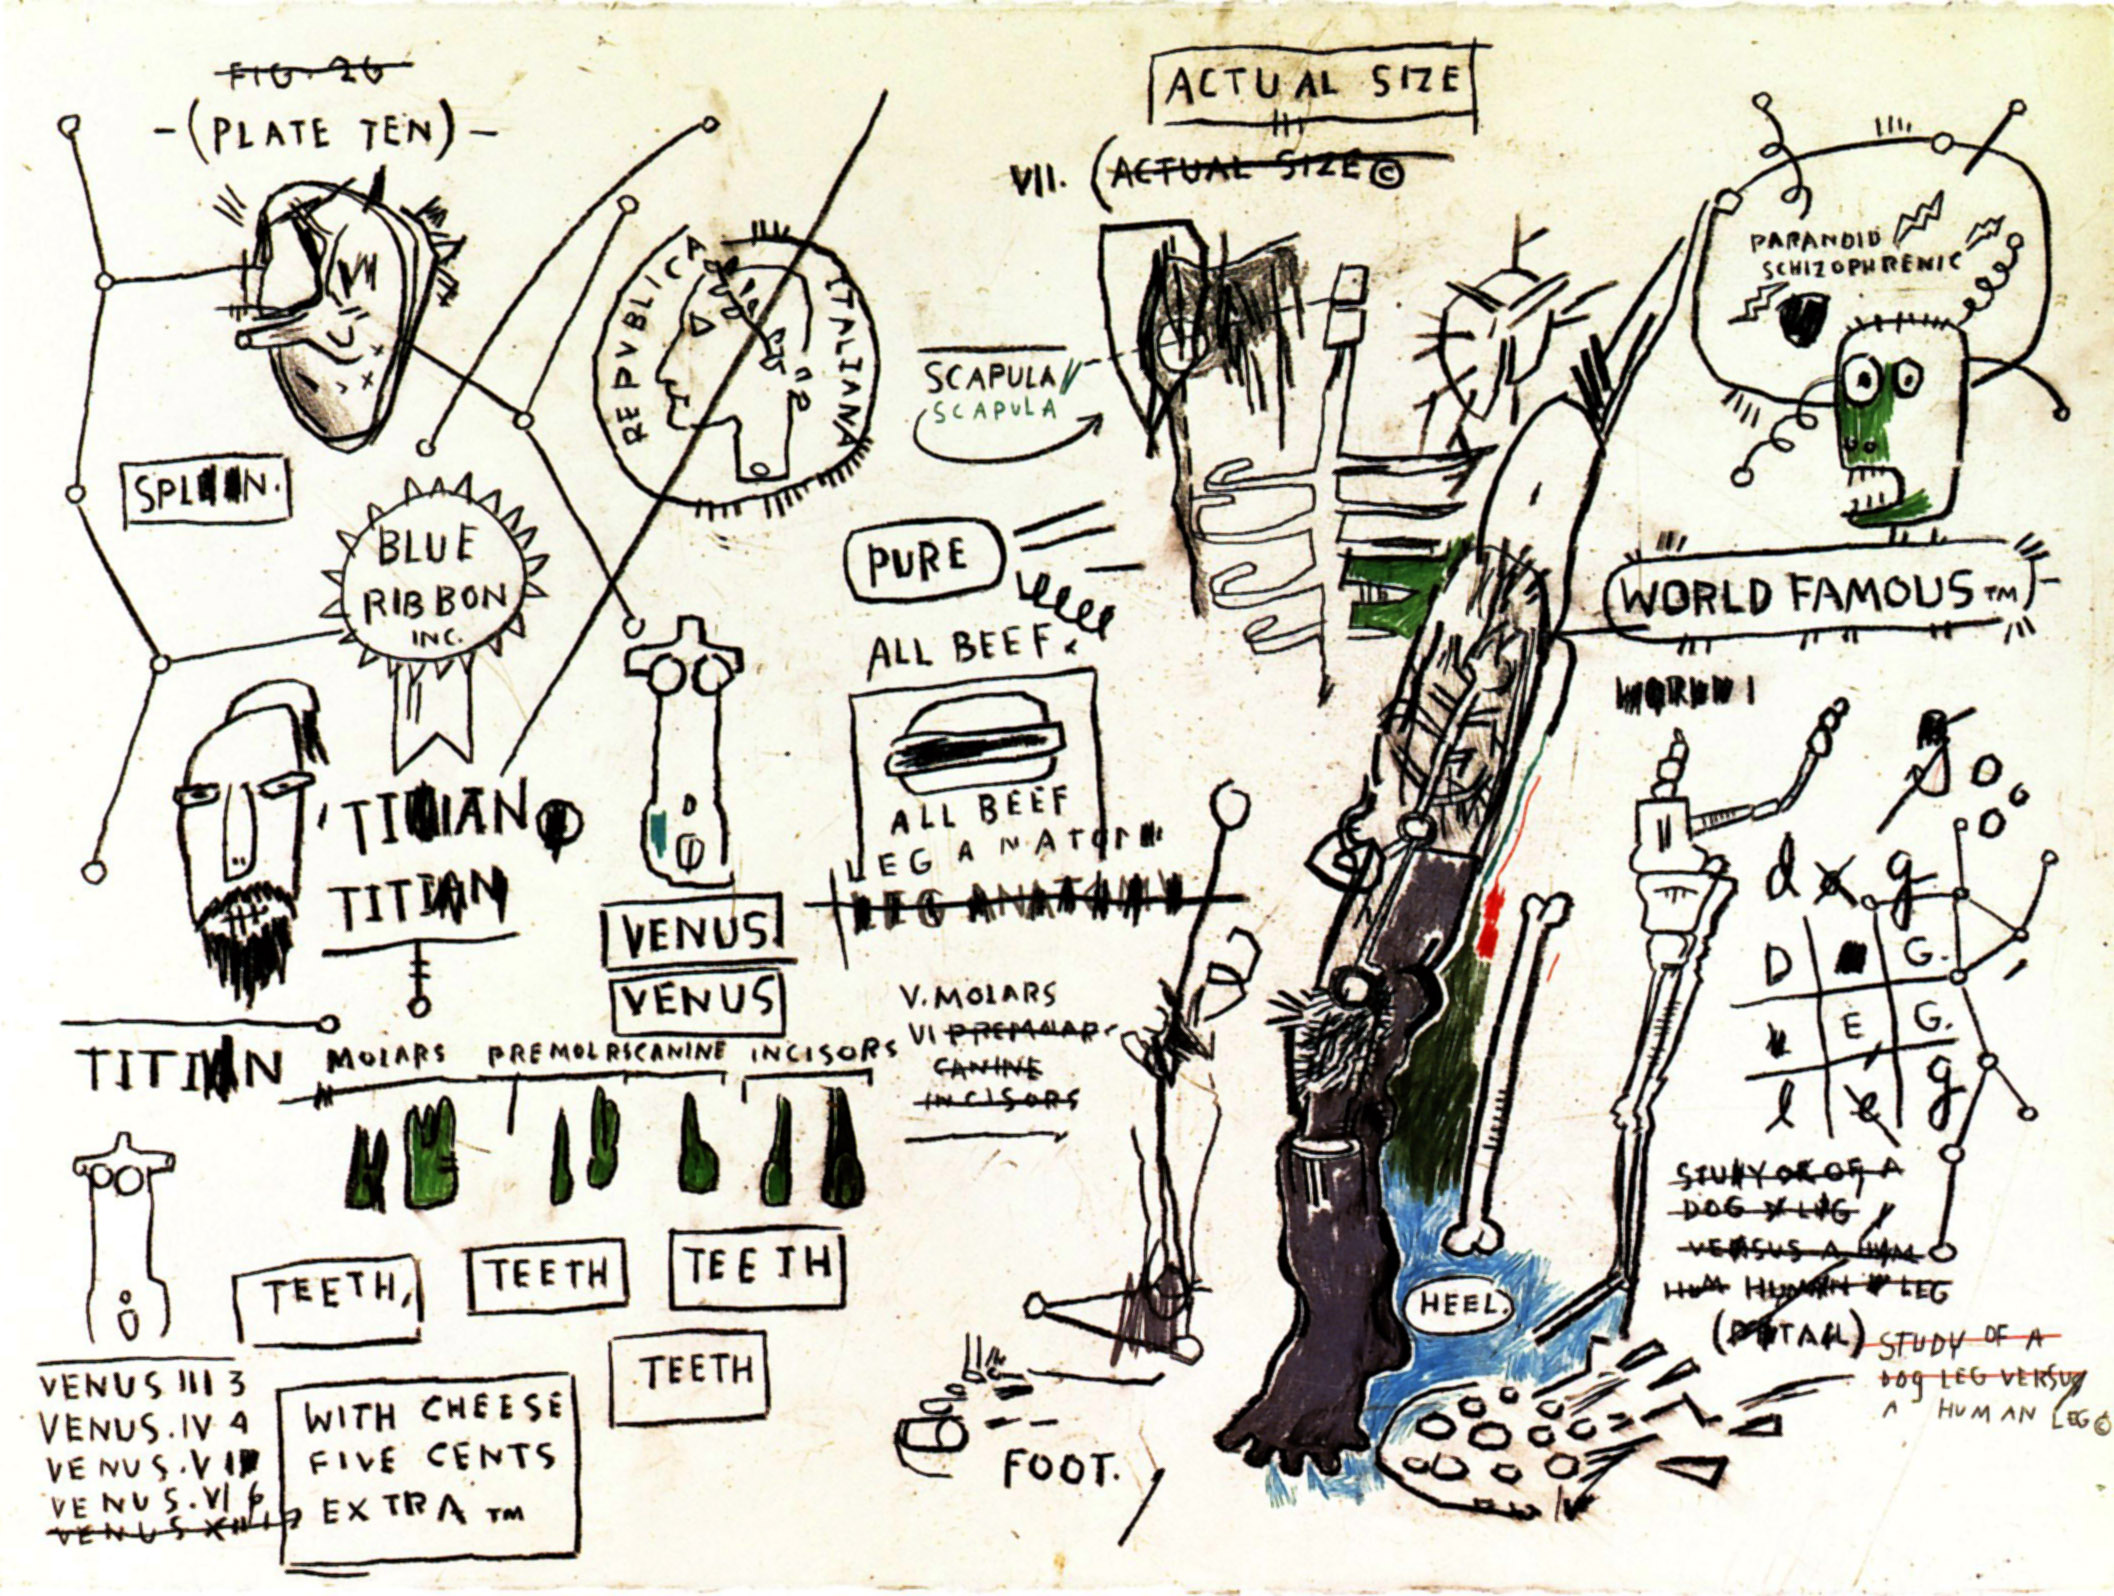 FIG. 26
-(PLATE TEN)-
ACTUAL SIZE
VII. (ACTUAL SIZE ©
REPVBLICA ITALIANA
PARANOID
SCHIZOPHRENIC
SCAPULA
SCAPULA
BLUE
RIBBON
INC.
PURE
ALL BEEF.
WORLD FAMOUS TM
ALL BEEF
LEG ANATOM
LEG ANATOMY
TITIAN
TITIAN
TITIAN
VENUS
VENUS
MOLARS PREMOLRSCANINE INCISORS
V. MOLARS
VI PREMOLAR
CANINE
INCISORS
d o g
D G.
E G.
l e g
STUDY OF OF A
DOG LEG
VERSUS A HUM
HUM HUMAN LEG
(DETAIL)
STUDY OF A
DOG LEG VERSUS
A HUMAN LEG ©
TEETH,
TEETH
TEETH
TEETH
HEEL.
FOOT.
VENUS III 3
VENUS. IV 4
VENUS. V
VENUS. VI 6
VENUS
WITH CHEESE
FIVE CENTS
EXTRA TM